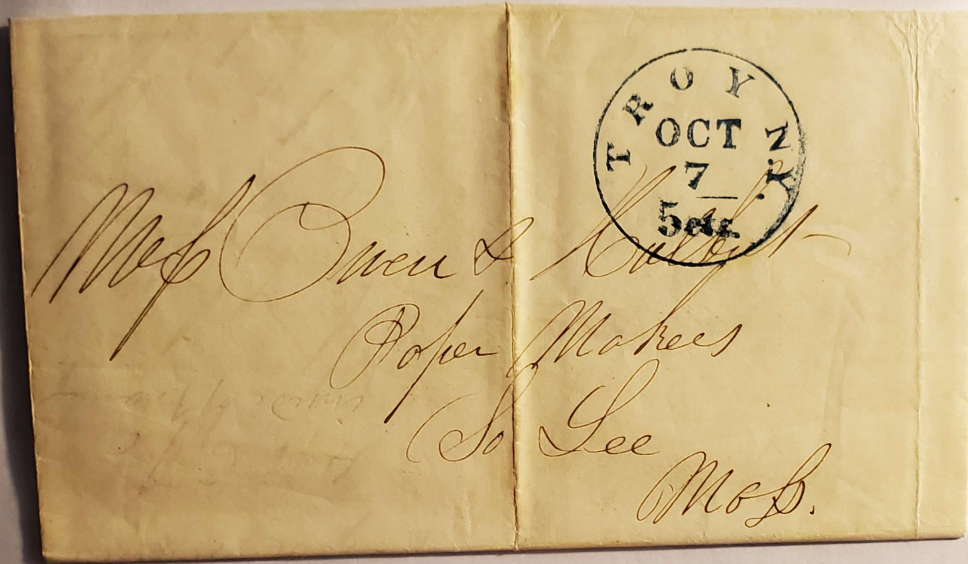 TROY N.Y.
OCT
7
5cts.
Mess Owen & Hulbut
Paper Makers
So Lee
Mass.